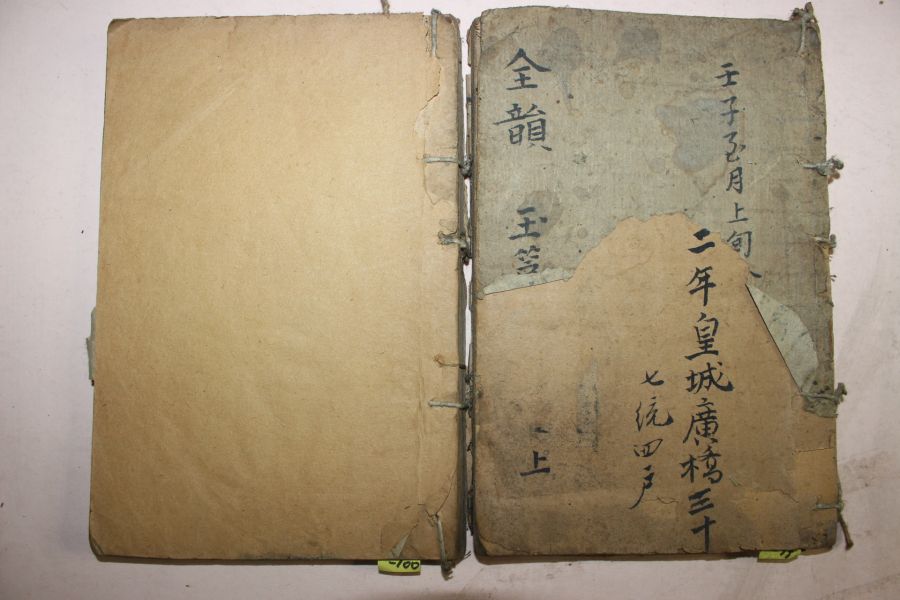 壬子至月上旬
二年皇城廣橋三十
七統四戶
全韻 玉
上